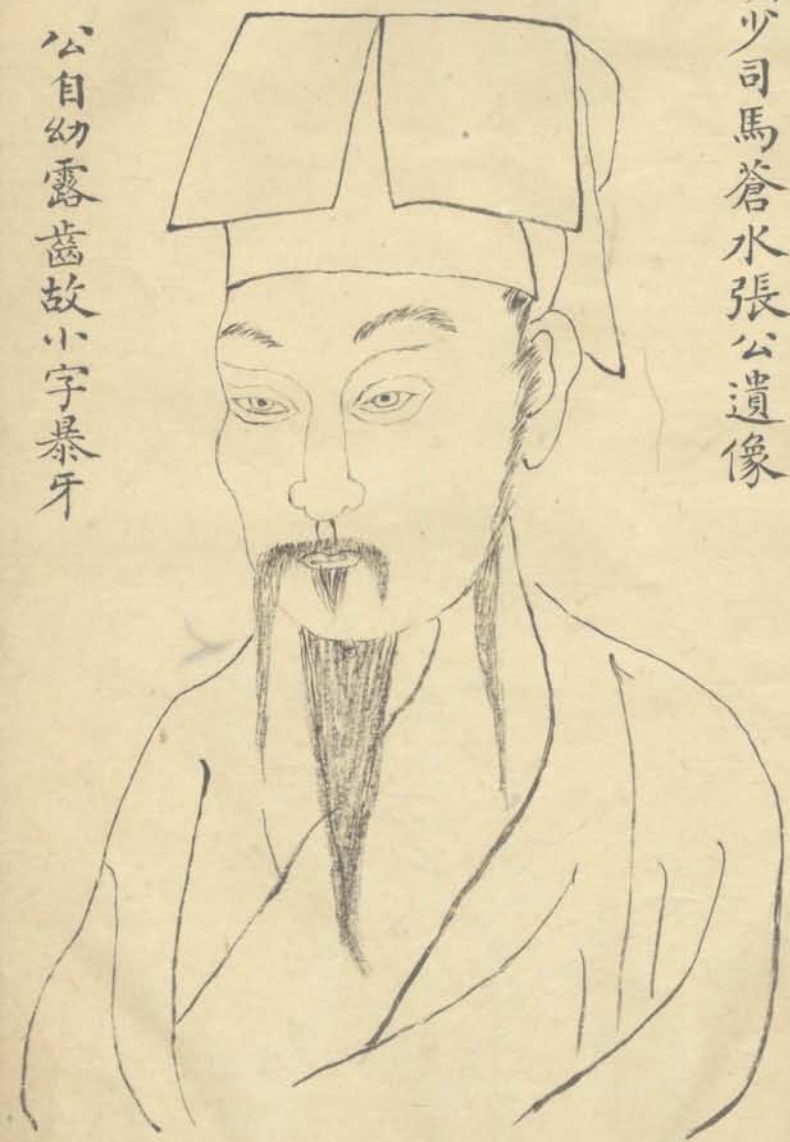 少司馬蒼水張公遺像
公自幼露齒故小字暴牙